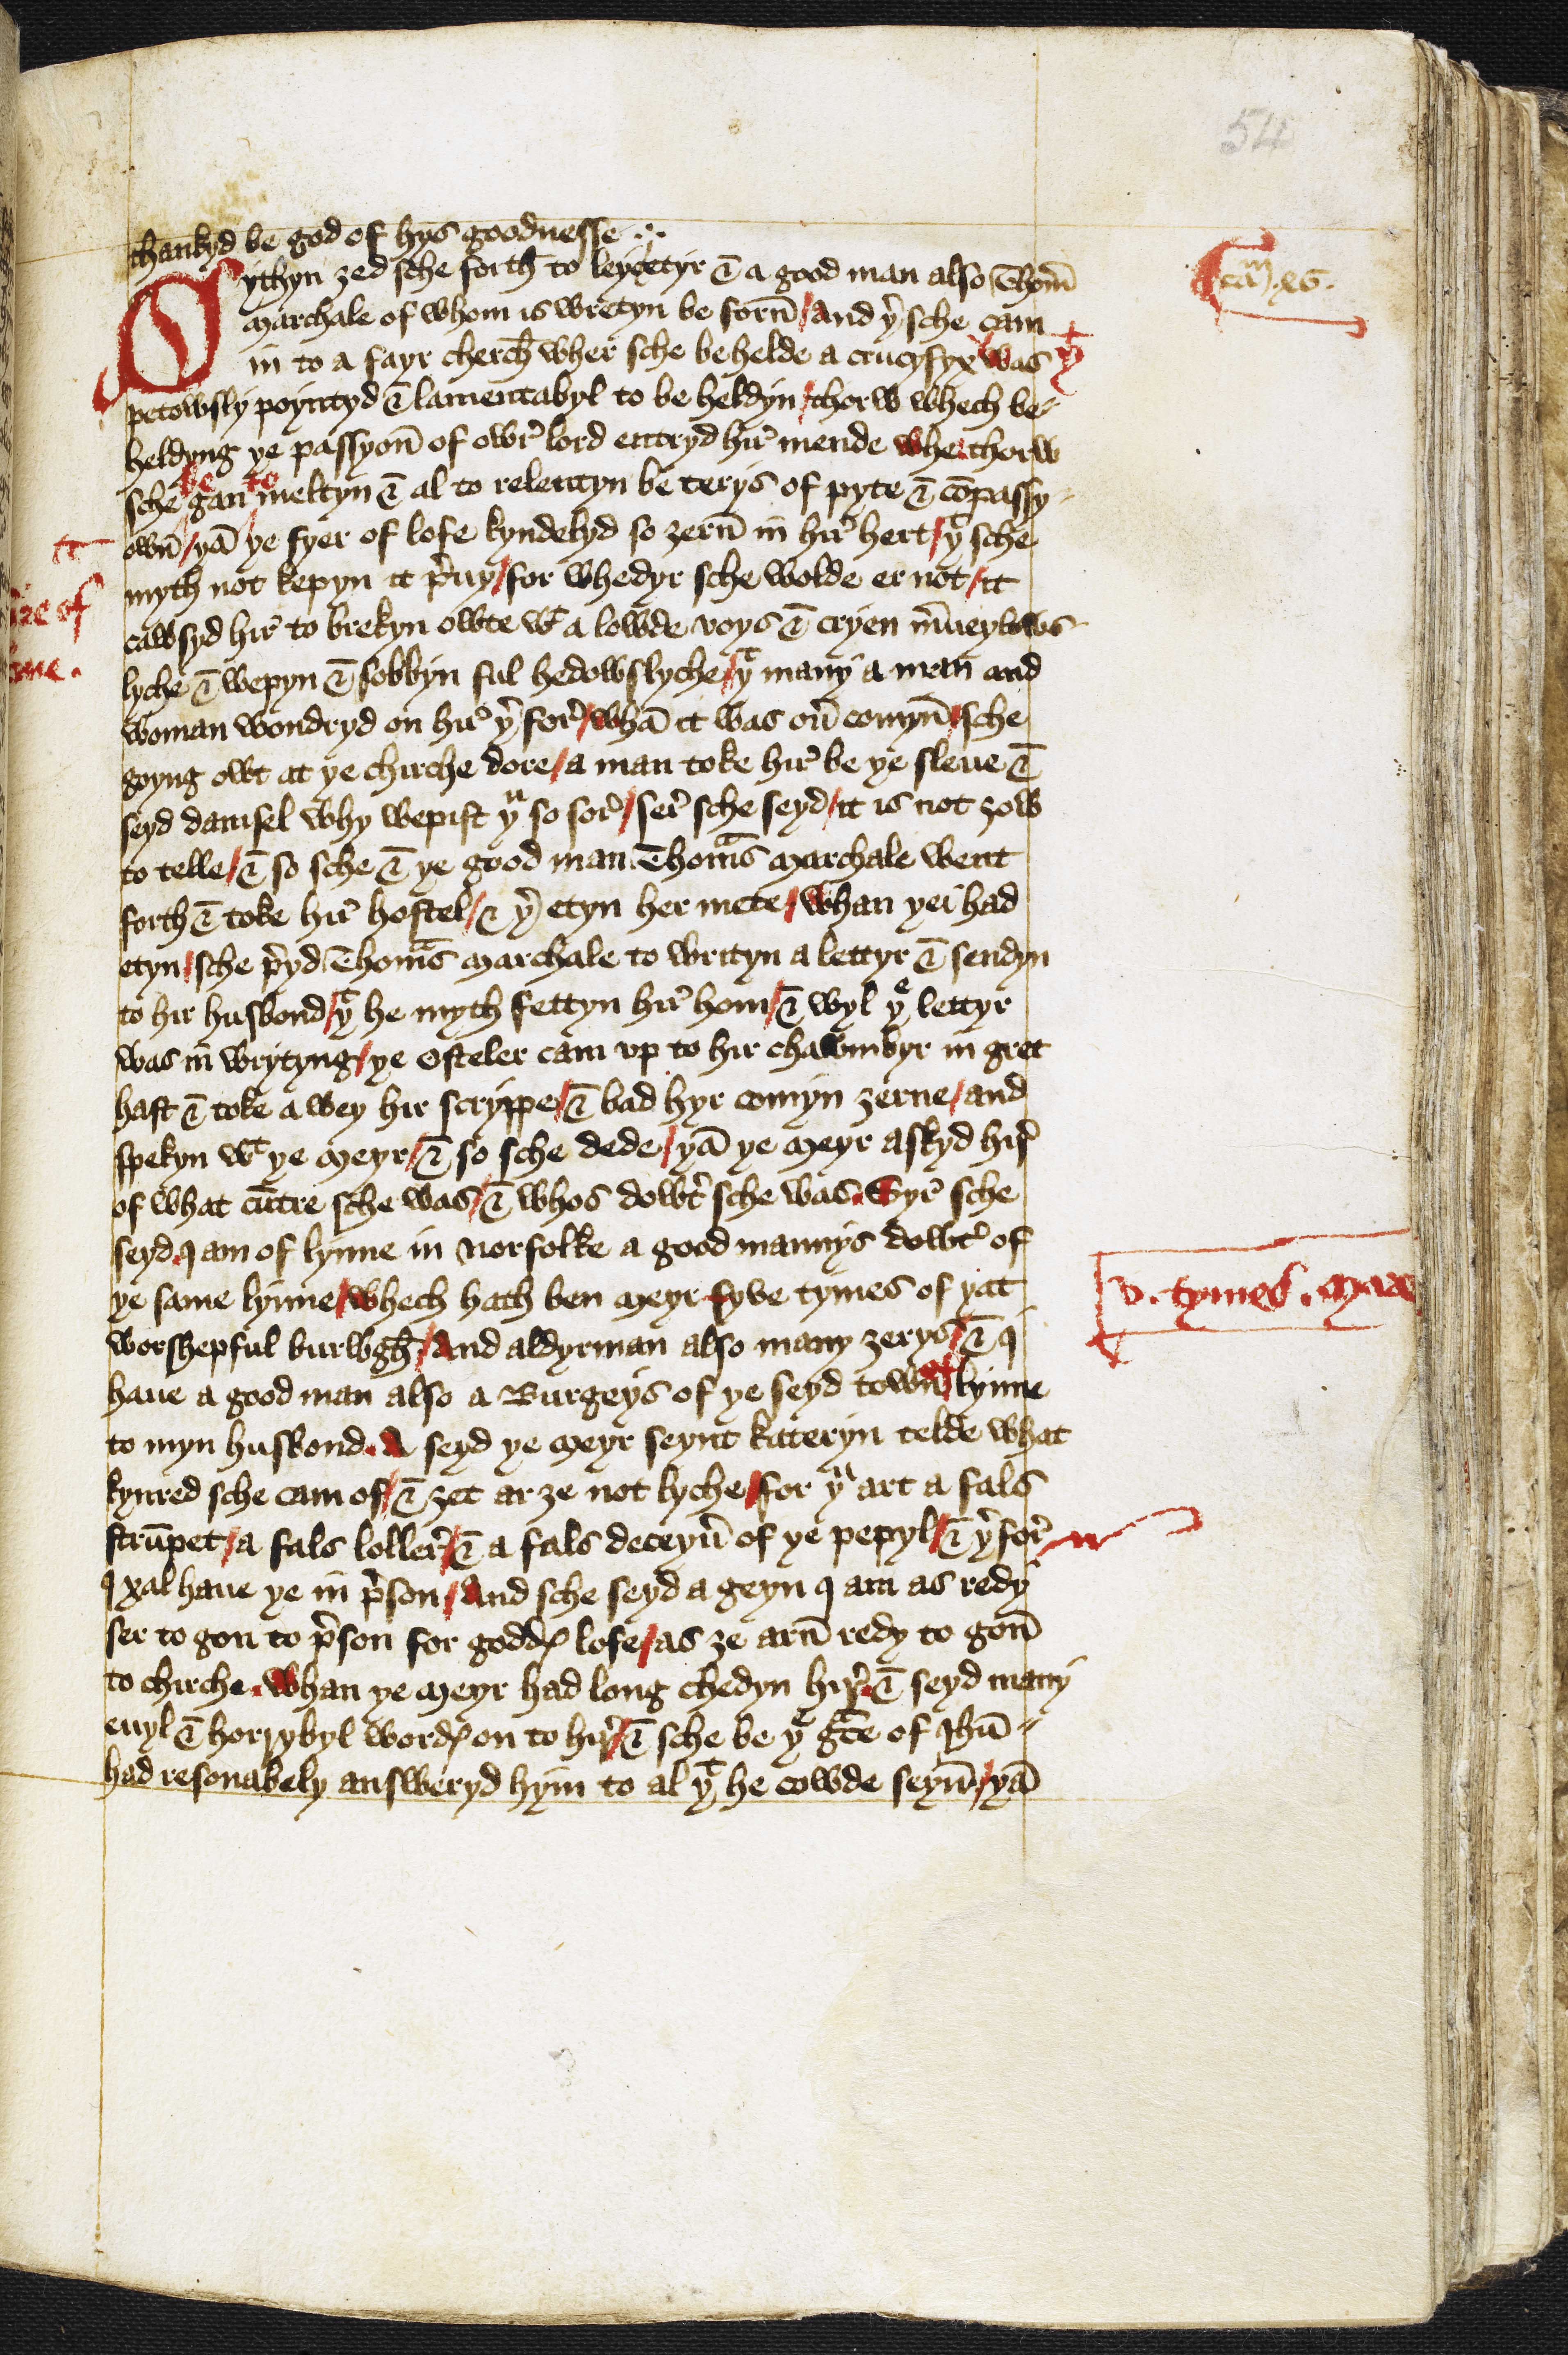 54
thankyd be god of hys goodnesse
Sythyn zed sche forth to leycetyr & a good man also Thom̃
Marchale of whom is wretyn be forn̄ / And yͬ sche cam
in to a fayr cherch wher sche behelde a crucyfyx was yͭ
petowsly poyntyd & lamentabyl to be heldyn / thorw whech be-
heldyng ye passyon̄ of owr̉ lord entryd hir̉ mende whe thorw
sche be gan to meltyn & al to relentyn be terys of pyte & cōpassy-
own̄ / yā ye fyer of lofe kyndelyd so zern̄ in hir̉ hert / yͭ sche
myth not kepyn it p̉uy / for whedyr sche wolde er not / it
cawsyd hir̉ to brekyn owte wͭ a lowde voys & cryen m̉ueylows-
lyche & wepyn & sobbyn ful hedowslyche / yͭ many a man and
woman wondryd on hir̉ yͬ for̉ / whā it was oủ comyn̄ / sche
goyng owt at ye chirche dore / a man toke hir̉ be ye sleue &
seyd damsel why wepist yͧ so sor̉ / ser̉ sche seyd / it is not zow
to telle / & so sche & ye good man Thom̃s Marchale went
forth & toke hir̉ hostel / & yͬ etyn her mete / whan yei had
etyn / sche p̉yd Thom̃s Marchale to writyn a lettyr & sendyn
to hir husbond / yͭ he myth fettyn hir̉ hom / & wyl yͤ lettyr
was in̄ wrytyng / ye osteler cam vp to hir chawmbyr in gret
hast & toke a wey hir scryppe / & bad hyr comyn zerne / and
spekyn wͭ ye Meyr / & so sche dede / yā ye Meyr askyd hir̉
of what cūtre sche was / & whos dowt̉ sche was. Syr̉ sche
seyd I am of lynne in Norfolke a good mannys dowt̉ of
ye same lynne / whech hath ben Meyr fyve tymes of yat
worshepful burwgh / And aldyrman also many zerys / & I
haue a good man also a Burgeys of ye seyd town̄ of lynne
to myn husbond. A seyd ye Meyr seynt kateryn telde what
kynred sche cam of / & zet ar ze not lyche / for yͧ art a fals
strūpet / a fals loller̉ / & a fals deceyủ of ye pepyl / & yͬ for̉
I xal haue ye in p̉son / And sche seyd a geyn I am as redy
ser to gon to p̉son for goddꝭ lofe / as ze arn̄ redy to gon̄
to chirche. Whan ye Meyr had long chedyn hir̉ & seyd many
euyl & horrybyl wordꝭ on to hir̉ / & sche be yͤ gͣce of Ihū
had resonabely answeryd hym to al yͭ he cowde seyn̄ / yā
cam̃ .46.
v. tymes. Mare